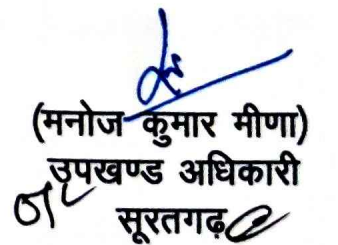 (मनोज कुमार मीणा)
उपखण्ड अधिकारी
सूरतगढ़